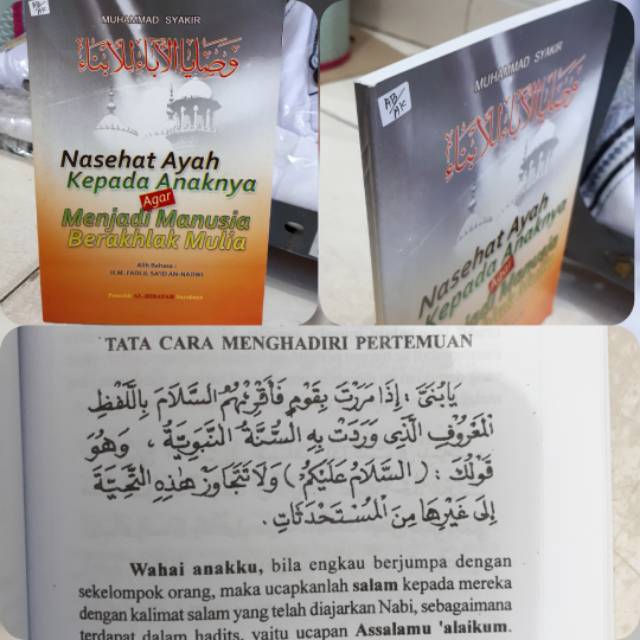 AB/AK
MUHAMMAD SYAKIR
وَصَايَا الْآبَاءِ لِلْأَبْنَاءِ
Nasehat Ayah
Kepada Anaknya
Agar
Menjadi Manusia
Berakhlak Mulia
Alih Bahasa :
H.M. FADLIL SA'ID AN-NADWI
Penerbit AL-HIDAYAH Surabaya
AB/AK
MUHAMMAD SYAKIR
وَصَايَا الْآبَاءِ لِلْأَبْنَاءِ
Nasehat Ayah
Kepada Anaknya
Agar
Menjadi Manusia
TATA CARA MENGHADIRI PERTEMUAN
يَابُنَيَّ : إِذَا مَرَرْتَ بِقَوْمٍ فَأَقْرِئْهُمُ السَّلَامَ بِاللَّفْظِ
الْمَعْرُوفِ الَّذِى وَرَدَتْ بِهِ السُّنَّةُ النَّبَوِيَّةُ ، وَهُوَ
قَوْلُكَ : ( السَّلَامُ عَلَيْكُمْ ) وَلَا تَتَجَاوَزْ هٰذِهِ التَّحِيَّةَ
إِلَى غَيْرِهَا مِنَ الْمُسْتَحْدَثَاتِ .
Wahai anakku, bila engkau berjumpa dengan
sekelompok orang, maka ucapkanlah salam kepada mereka
dengan kalimat salam yang telah diajarkan Nabi, sebagaimana
terdapat dalam hadits, yaitu ucapan Assalamu 'alaikum.